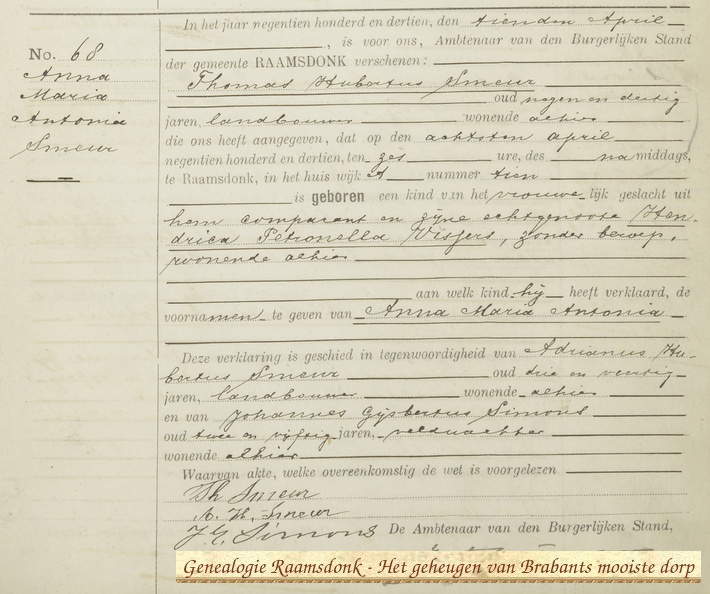 In het jaar negentien honderd en dertien, den tienden April
, is voor ons, Ambtenaar van den Burgerlijken Stand
der gemeente RAAMSDONK verschenen:
No. 68
Anna
Maria
Antonia
Smeur
Thomas Hubertus Smeur
oud negen en dertig
jaren, landbouwer wonende alhier
die ons heeft aangegeven, dat op den achtsten april
negentien honderd en dertien, ten zes ure, des na middags,
te Raamsdonk, in het huis wijk A nummer tien
is geboren een kind van het vrouwe lijk geslacht uit
hem comparant en zijne echtgenoote Hen-
drica Petronella Vissers, zonder beroep,
wonende alhier
aan welk kind hij heeft verklaard, de
voornamen te geven van Anna Maria Antonia
Deze verklaring is geschied in tegenwoordigheid van Adrianus Hu-
bertus Smeur oud drie en veertig
jaren, landbouwer wonende alhier
en van Johannes Gijsbertus Simons
oud twee en vijftig jaren, veldwachter
wonende alhier
Waarvan akte, welke overeenkomstig de wet is voorgelezen
Th Smeur
A. H. Smeur
J. G. Simons De Ambtenaar van den Burgerlijken Stand,
Genealogie Raamsdonk - Het geheugen van Brabants mooiste dorp